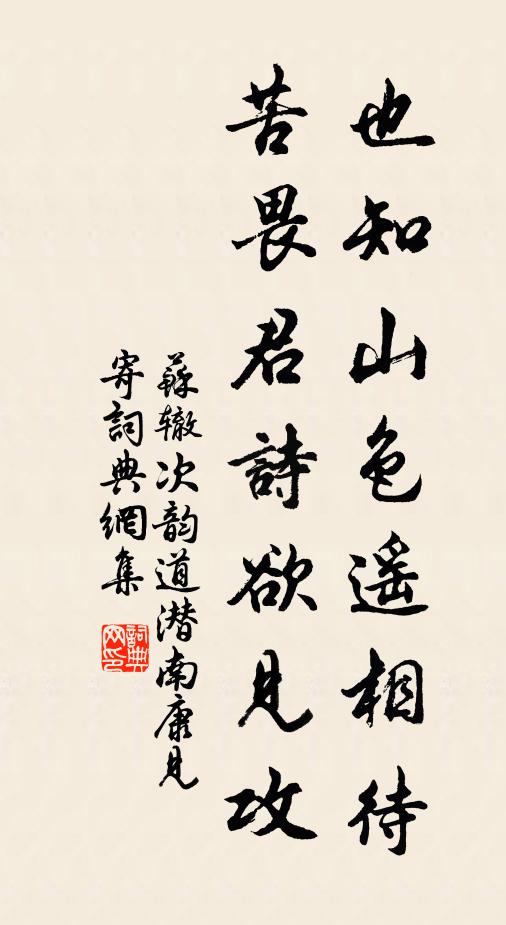 也知山色遥相待
苦畏君詩欲見攻
蘇辙次韵道潜南康見
寄詞典網集
詞典
网印